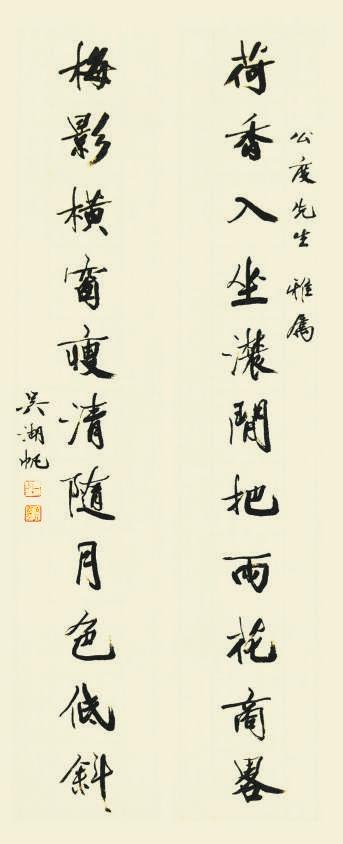 公度先生 雅屬
荷香入坐濃閒把雨花商畧
梅影橫窗瘦清随月色低斜
吳湖帆